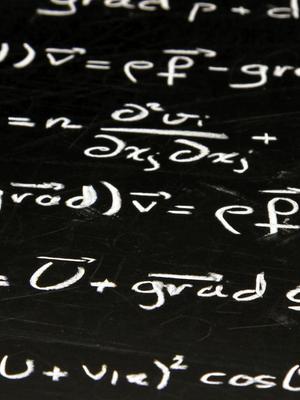 grad p + d
) v⃗ = ρf⃗ - gra
= n ∂²vᵢ / ∂xⱼ ∂xⱼ +
grad) v⃗ = ρf⃗
= U⃗ + grad
U + v₁ₓ)² cos(